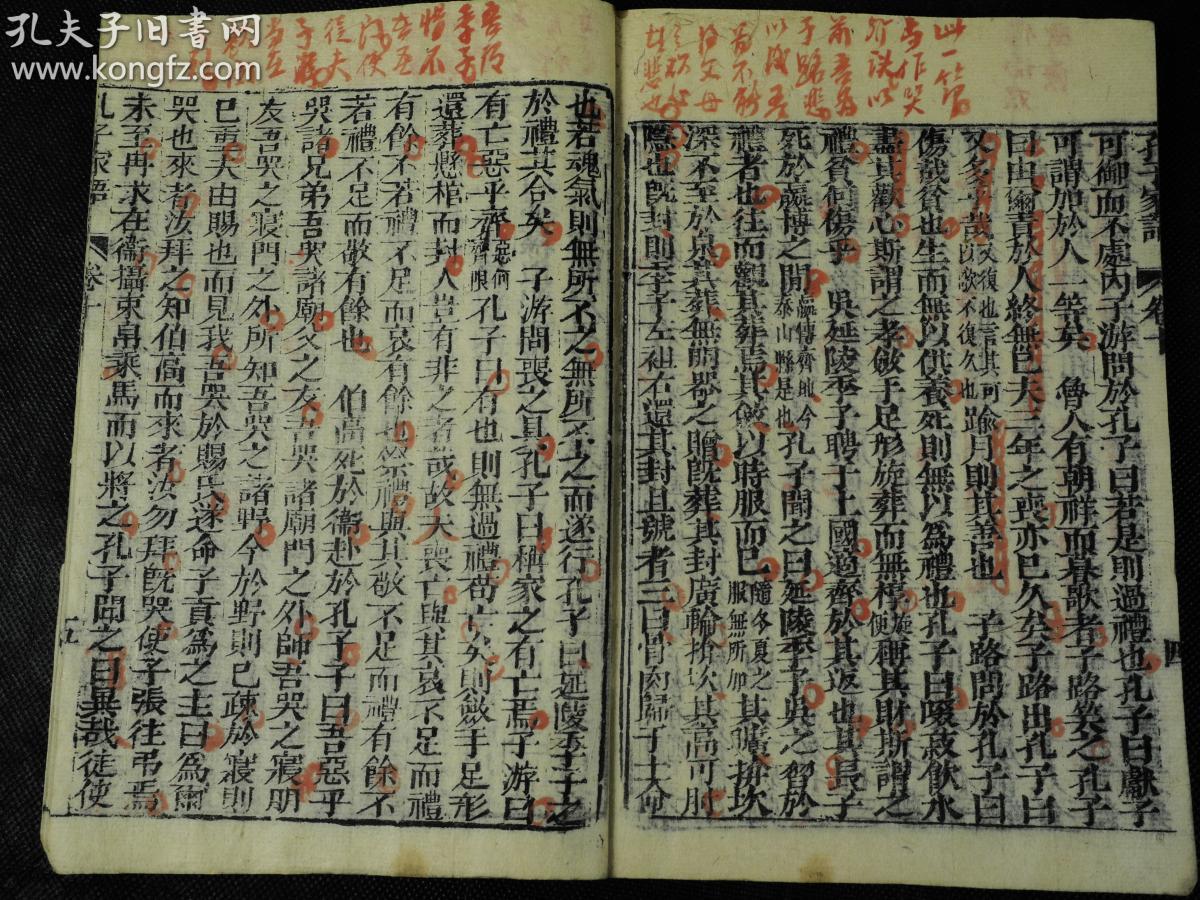 孔夫子旧书网
www.kongfz.com
孔子家語
卷十
四
可御而不處內子游問於孔子曰若是則過禮也孔子曰獻子
可謂加於人一等矣 魯人有朝祥而暮歌者子路笑之孔子
曰由爾責於人終無已夫三年之喪亦已久矣子路出孔子曰
又多乎哉又復也言其可以歌不復久也踰月則其善也 子路問於孔子曰
傷哉貧也生而無以供養死則無以為禮也孔子曰啜菽飲水
盡其歡心斯謂之孝斂手足形旋葬而無槨旋便稱其財斯謂之
禮貧何傷乎 吳延陵季子聘于上國適齊於其返也其長子
死於嬴博之間嬴博齊地今泰山縣是也孔子聞之曰延陵季子吳之習於
禮者也往而觀其葬焉其斂以時服而已隨冬夏之服無所加其壙揜坎
深不至於泉其葬無明器之贈既葬其封廣輪揜坎其高可肘
隱也既封則季子左袒右還其封且號者三曰骨肉歸于土命
也若魂氣則無所不之無所不之而遂行孔子曰延陵季子之
於禮其合矣 子游問喪之具孔子曰稱家之有亡焉子游曰
有亡惡乎齊惡何齊限孔子曰有也則無過禮苟亡矣則斂手足形
還葬懸棺而封人豈有非之者哉故夫喪亡與其哀不足而禮
有餘不若禮不足而哀有餘也祭禮與其敬不足而禮有餘不
若禮不足而敬有餘也 伯高死於衛赴於孔子子曰吾惡乎
哭諸兄弟吾哭諸廟父之友吾哭諸廟門之外師吾哭之寢朋
友吾哭之寢門之外所知吾哭之諸野今於野則已疎於寢則
已重夫由賜也而見我吾哭於賜氏遂命子貢為之主曰為爾
哭也來者汝拜之知伯高而來者汝勿拜既哭使子張往弔焉
未至冉求在衛攝束帛乘馬而以將之孔子聞之曰異哉徒使
孔子家語
卷十
五